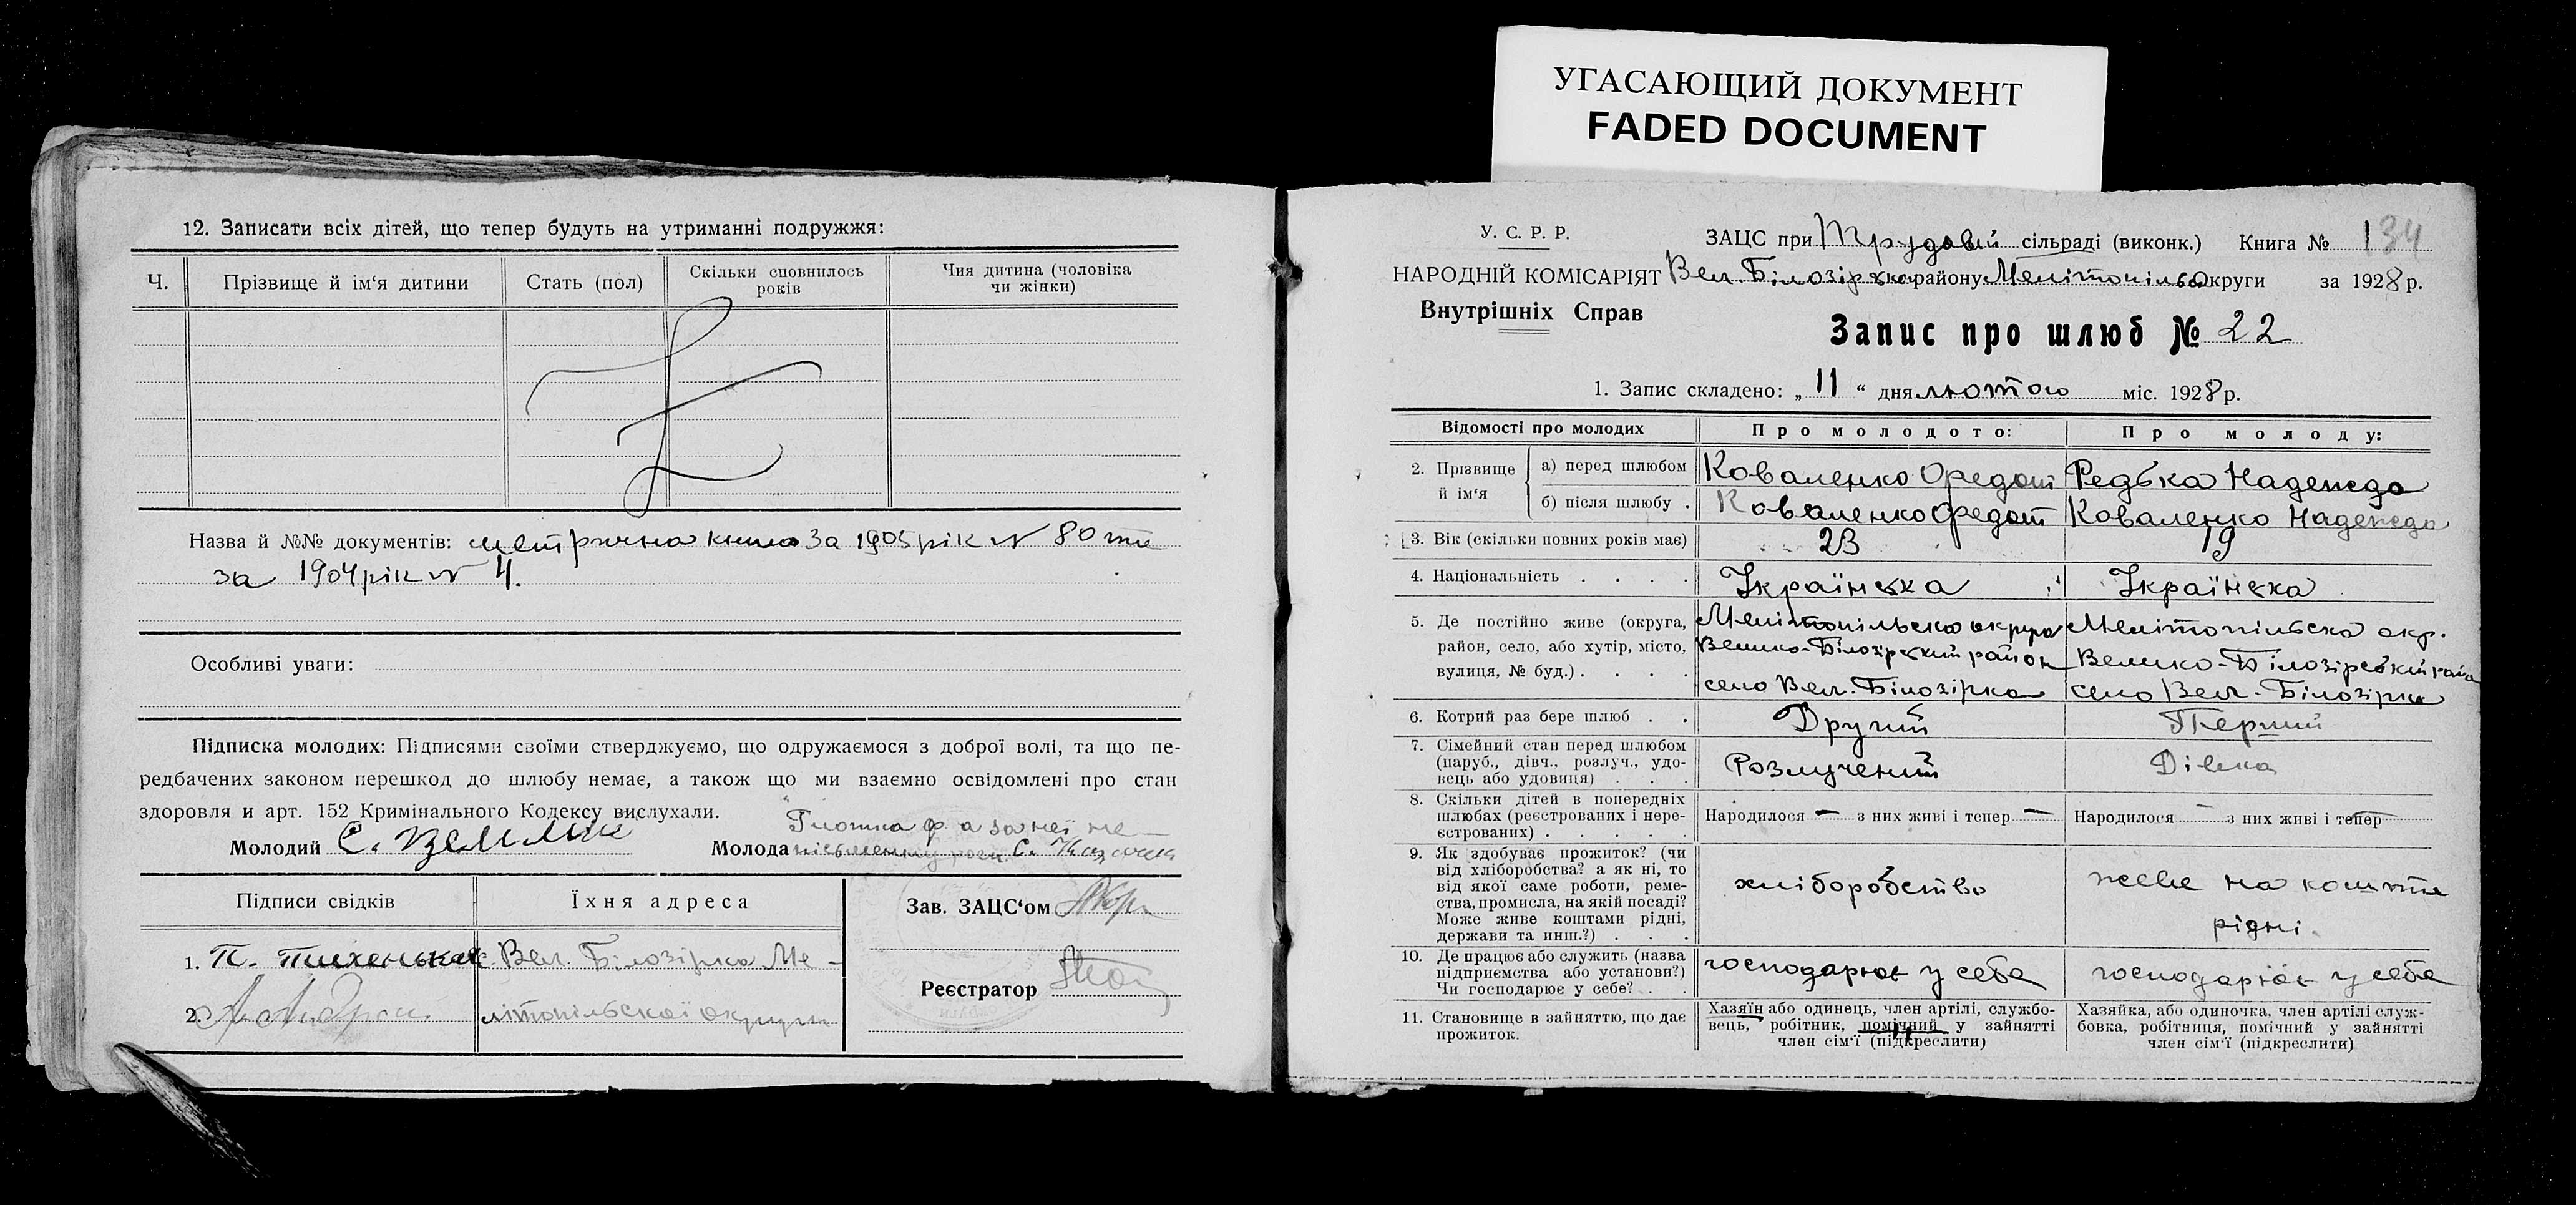 УГАСАЮЩИЙ ДОКУМЕНТ
FADED DOCUMENT
12. Записати всіх дітей, що тепер будуть на утриманні подружжя:
Ч. Прізвище й ім‘я дитини Стать (пол) Скільки сповнилось років Чия дитина (чоловіка чи жінки)
Назва й №№ документів: метрична книга За 1905 рік № 80 та
за 1904 рік № 4.
Особливі уваги:
Підписка молодих: Підписями своїми стверджуємо, що одружаємося з доброї волі, та що пе-
редбачених законом перешкод до шлюбу немає, а також що ми взаємно освідомлені про стан
здоровля и арт. 152 Кримінального Кодексу вислухали.
а за неї не-
Молодий С. Молода письменну С.
Підписи свідків Їхня адреса
Зав. ЗАЦС‘ом
1. П. Тихенький Вел. Білозірка Ме-
Реєстратор
2. літопільської округи
У. С. Р. Р.
ЗАЦС при Трудовій сільраді (виконк.) Книга № 134
НАРОДНІЙ КОМІСАРІЯТ Вел. Білозірсько району Мелітопільсь округи за 1928 р.
Внутрішніх Справ
Запис про шлюб № 22
1. Запис складено: „ 11 “ дня лютого міс. 1928 р.
Відомості про молодих Про молодого: Про молоду:
2. Прізвище й ім‘я
а) перед шлюбом Коваленко Федот Редька Надежда
б) після шлюбу . Коваленко Федот Коваленко Надежда
3. Вік (скільки повних років має) 23 19
4. Національність . . . . Українська Українська
5. Де постійно живе (округа, Мелітопільська округа Мелітопільска окр.
район, село, або хутір, місто, Велико-Білозірський район Велико-Білозірський райо
вулиця, № буд.) . . . . село Вел. Білозірка село Вел. Білозірка
6. Котрий раз бере шлюб . . Другий Перший
7. Сімейний стан перед шлюбом
(паруб., дівч., розлуч., удо- Розлучений Дівка
вець або удовиця) . . .
8. Скільки дітей в попередніх
шлюбах (реєстрованих і нере- Народилося — з них живі і тепер — Народилося — з них живі і тепер
єстрованих) . . . . .
9. Як здобуває прожиток? (чи
від хліборобства? а як ні, то
від якої саме роботи, реме- хліборобство живе на кошти
ства, промисла, на якій посаді?
Може живе коштами рідні, рідні.
держави та инш.?) . . .
10. Де працює або служить (назва господарює у себе господарює у себе
підприємства або установи?)
Чи господарює у себе? . .
11. Становище в зайняттю, що дає
прожиток.
Хазяїн або одинець, член артілі, службо-
вець, робітник, помічний у зайнятті
член сім‘ї (підкреслити)
Хазяйка, або одиночка, член артілі служ-
бовка, робітниця, помічний у зайнятті
член сім‘ї (підкреслити)